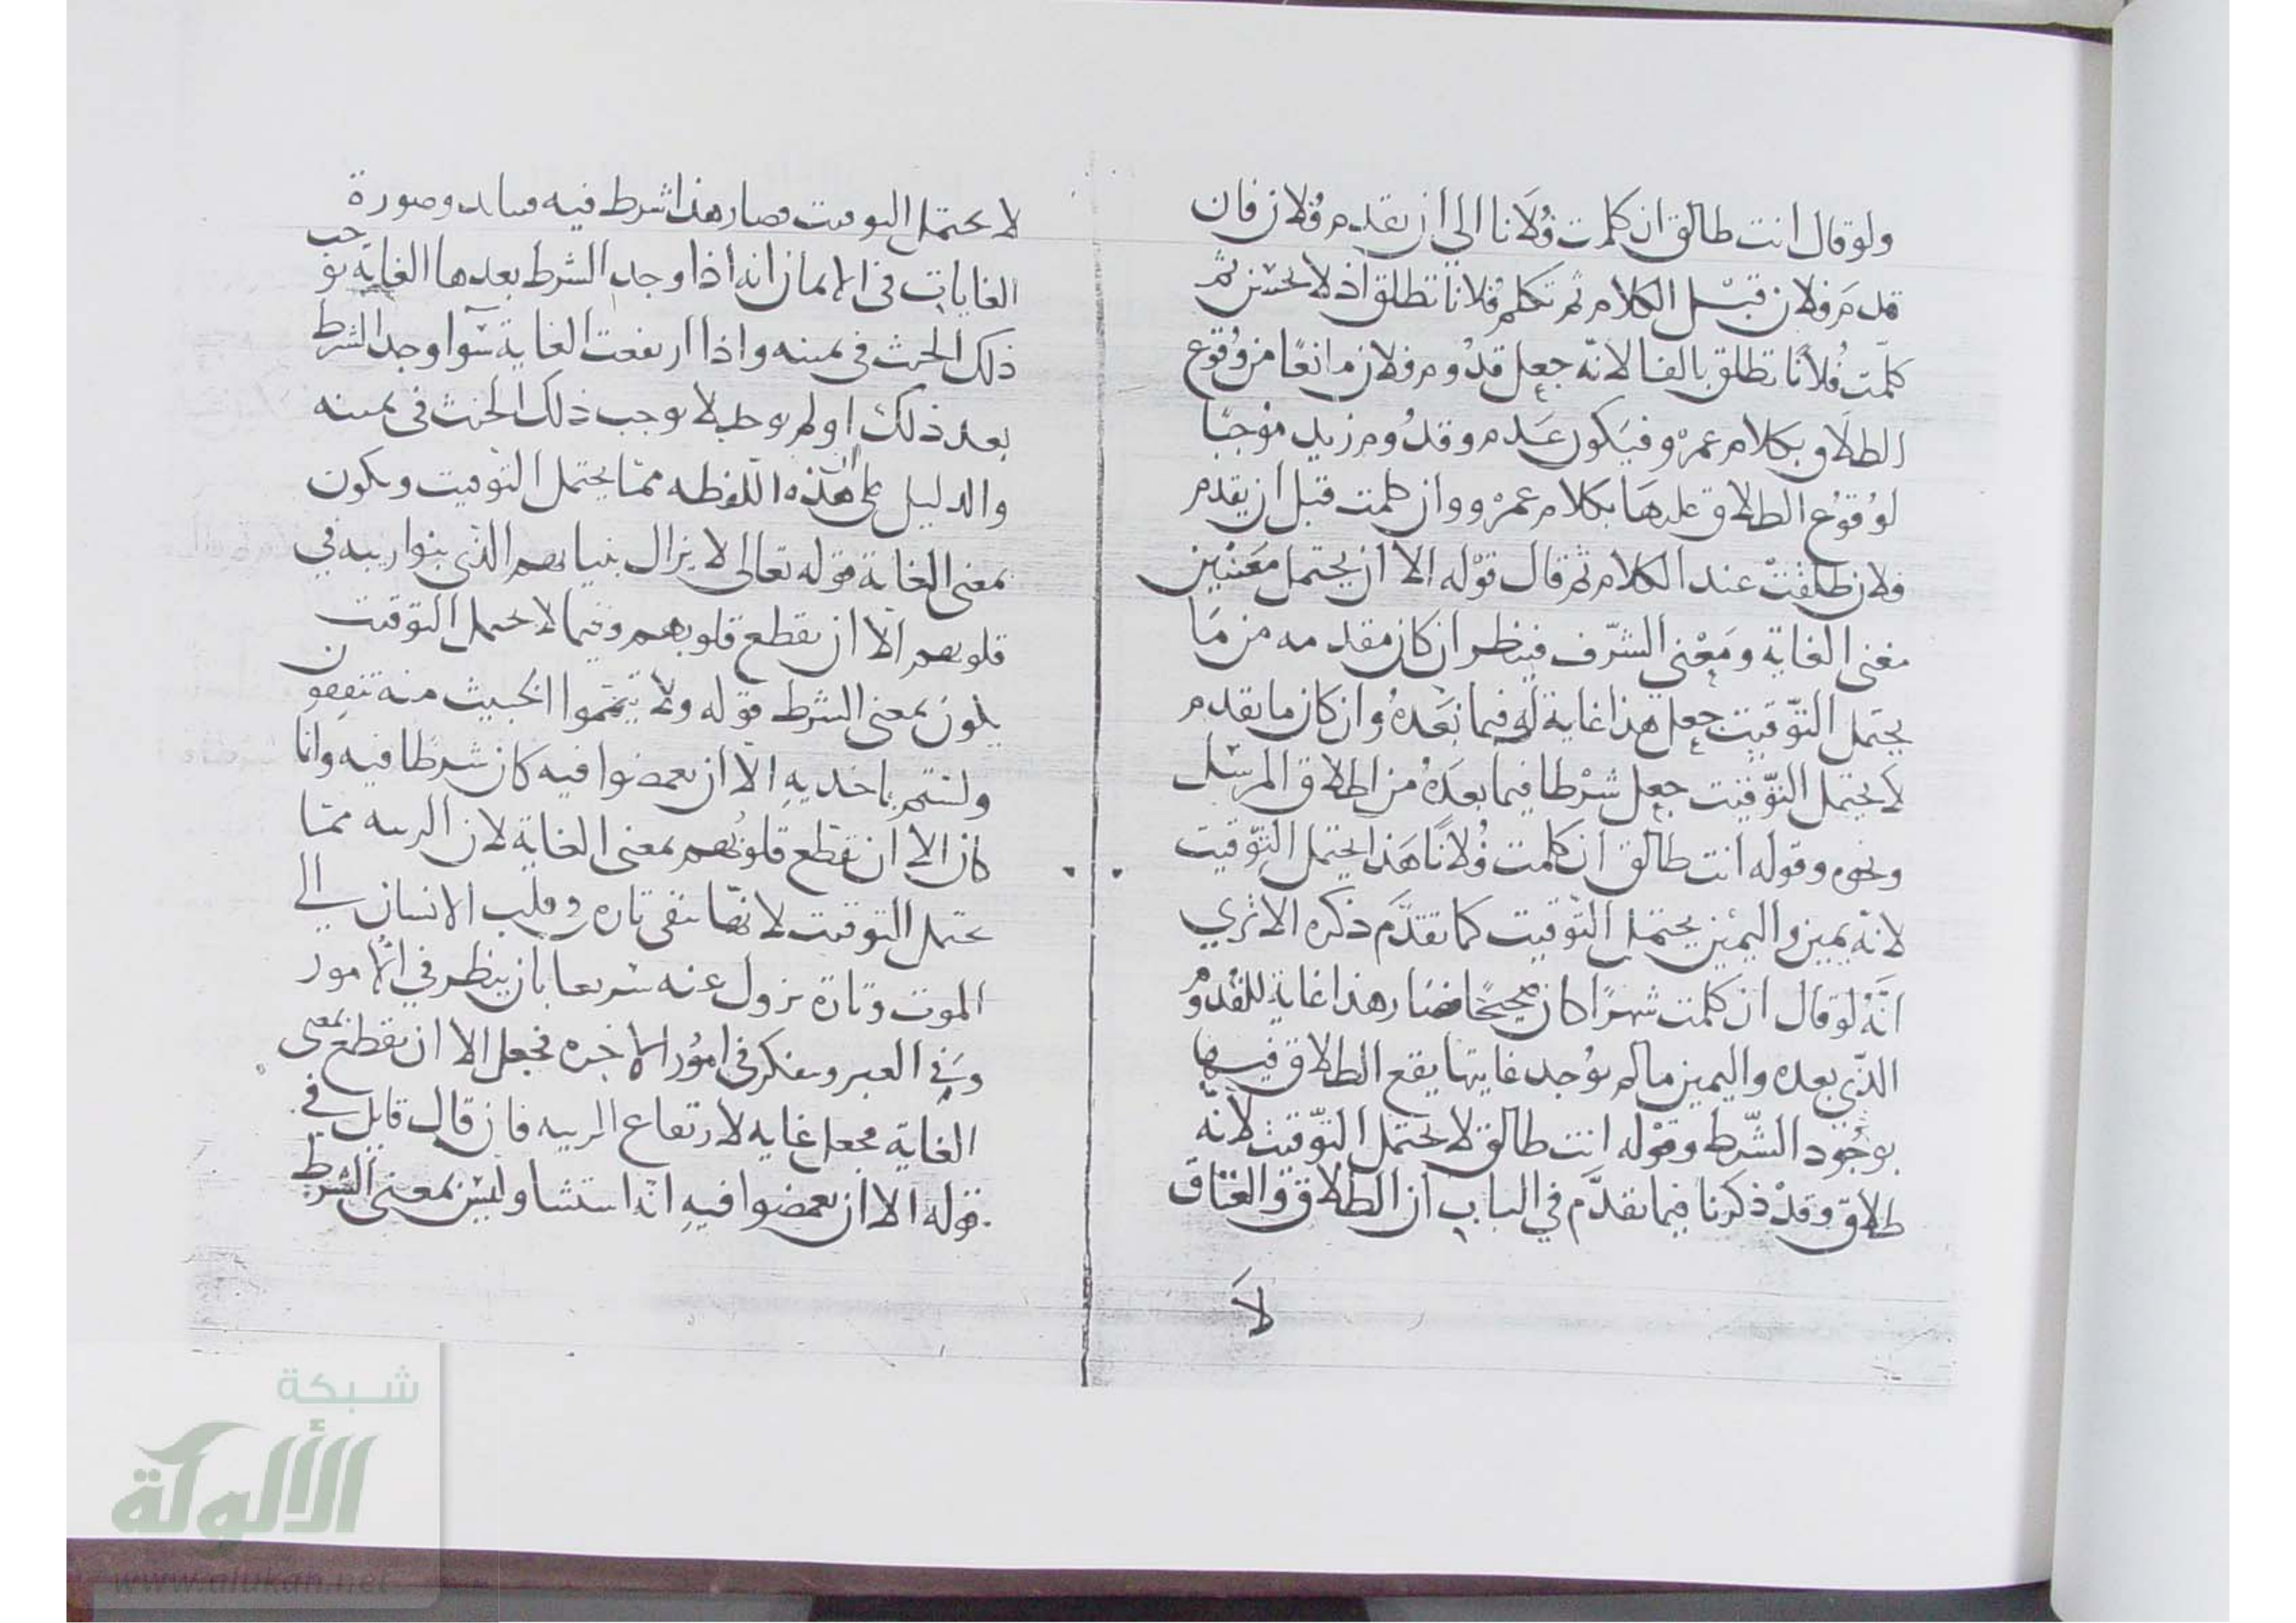 ولو قال انت طالق ان كلمت فُلَانا الى ان يقدم فُلان فان
قدمَ فلان قبل الكلام ثم تكلم فلانا تطلق اذ لا يحسن ثم
كلّمت فُلانًا تطلق بالفا لانّه جعل قدُوم فلان مانعًا من وُقوع
الطلاق بكلام عمرو فيَكون عَدم وقدُوم زيد موُجبًا
لوُقوُع الطلاق عليهَا بكلام عمرْو وان كلمت قبل ان يقدم
فلان طلقتْ عند الكلام ثم قال قوْله الا ان يحتمل مَعنيَين
معنى الغاية ومَعْنى الشّرف فينظر ان كان مقدمه من مَا
يحتمل التّوقيت جعل هذا غاية له فيما بَعَدهُ وان كان ما تقدم
لا يحتمل التّوقيت جعل شرْطا فيما بعدَهُ من الطلاق المرسَل
ونحوه وقوله انت طالق ان كلمت فُلانًا هَذا يحتمل التّوقيت
لانّه يمين واليمين يحتمل التّوقيت كما تقدَّم ذكره الا ترَي
انَّهُ لو قال ان كلمت شهرًا كان صحيحًا فصَار هذا غاية للقدُوم
الذّي بعده واليمين ما لم يوُجد غايتها يقع الطلاق فيها
بوجُود الشّرط وقوْله انت طالق لا يحتمل التّوقيت لانّه
طلاق وقدْ ذكرنا فيما تقدَّم في الباب ان الطلاق والعتاق
لاَ
لا يحتمل التوقيت فصار هذا شرط فيه وصورة
الغايات في الايمان انه اذا وجد الشرط بعدها الغاية يوجب
ذلك الحنث في يمينه واذا ارتفعت الغاية سَوا وجد الشرط
بعد ذلك او لم يوجد لا يوجب ذلك الحنث في يمينه
والدليل على ان هذه اللفظه ممّا يحتمل التوقيت ويكون
بمعنى الغاية قوله تعالى لا يزال بنيانهم الذي بنوا ريبه في
قلوبهم الّا ان تقطع قلوبهم وفيما لا يحتمل التوقيت
يكون بمعنى الشرط قوله ولا تيمّموا الخبيث منه تنفقون
ولستم باخذيه الّا ان تغمضوا فيه كان شرطا فيه وانا
كان الا ان تقطع قلوبُهم بمعنى الغاية لان الريبه ممّا
يحتمل التوقيت لانّها تبقى تاره في قلب الانسان الى
الموت وتارة تزول عنه سريعا بان ينظر في الأمور
وَفي العبر ويتفكر في امُور الاخره فجعل الا ان تقطع بمعنى
الغاية فجعل غايه لارتفاع الريبه فان قال قايل في
قوله الا ان تغمضوا فيه انّه استثنا وليْسَ بمعنى الشرط
شبكة
الألوكة
www.alukah.net